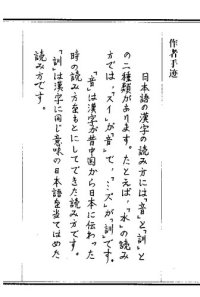 作者手迹
日本語の漢字の読み方には「音」と「訓」と
の二種類があります。たとえば、「水」の読み
方では、「スイ」が「音」で、「ミズ」が「訓」です。
「音」は漢字が昔中国から日本に伝わった
時の読み方をもとにしてできた読み方です。
「訓」は漢字に同じ意味の日本語を当てはめた
読み方です。